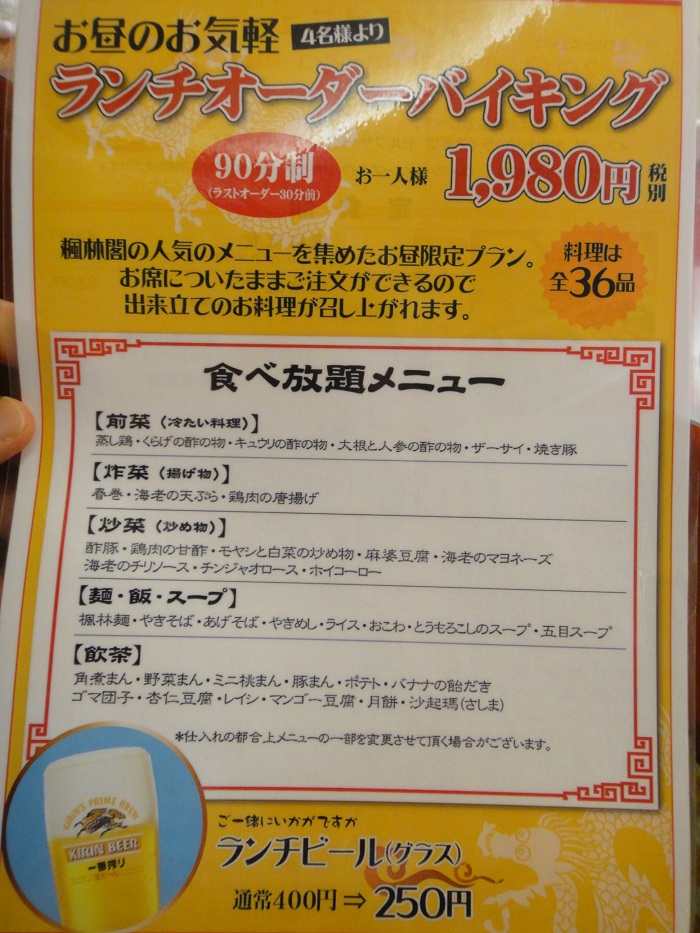 お昼のお気軽 4名様より
ランチオーダーバイキング
90分制
(ラストオーダー30分前)
お一人様 1,980円 税別
楓林閣の人気のメニューを集めたお昼限定プラン。
お席についたままご注文ができるので
出来立てのお料理が召し上がれます。
料理は
全36品
食べ放題メニュー
【前菜（冷たい料理）】
蒸し鶏・くらげの酢の物・キュウリの酢の物・大根と人参の酢の物・ザーサイ・焼き豚
【炸菜（揚げ物）】
春巻・海老の天ぷら・鶏肉の唐揚げ
【炒菜（炒め物）】
酢豚・鶏肉の甘酢・モヤシと白菜の炒め物・麻婆豆腐・海老のマヨネーズ
海老のチリソース・チンジャオロース・ホイコーロー
【麺・飯・スープ】
楓林麺・やきそば・あげそば・やきめし・ライス・おこわ・とうもろこしのスープ・五目スープ
【飲茶】
角煮まん・野菜まん・ミニ桃まん・豚まん・ポテト・バナナの飴だき
ゴマ団子・杏仁豆腐・レイシ・マンゴー豆腐・月餅・沙起瑪(さしま)
*仕入れの都合上メニューの一部を変更させて頂く場合がございます。
KIRIN'S PRIME BREW
KIRIN BEER
一番搾り
ご一緒にいかがですか
ランチビール(グラス)
通常400円⇒250円